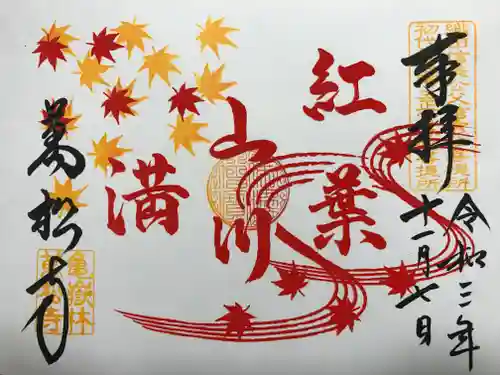 奉拝
令和三年
十一月七日
紅葉
山川
満
萬松寺
龜嶽林
萬松寺